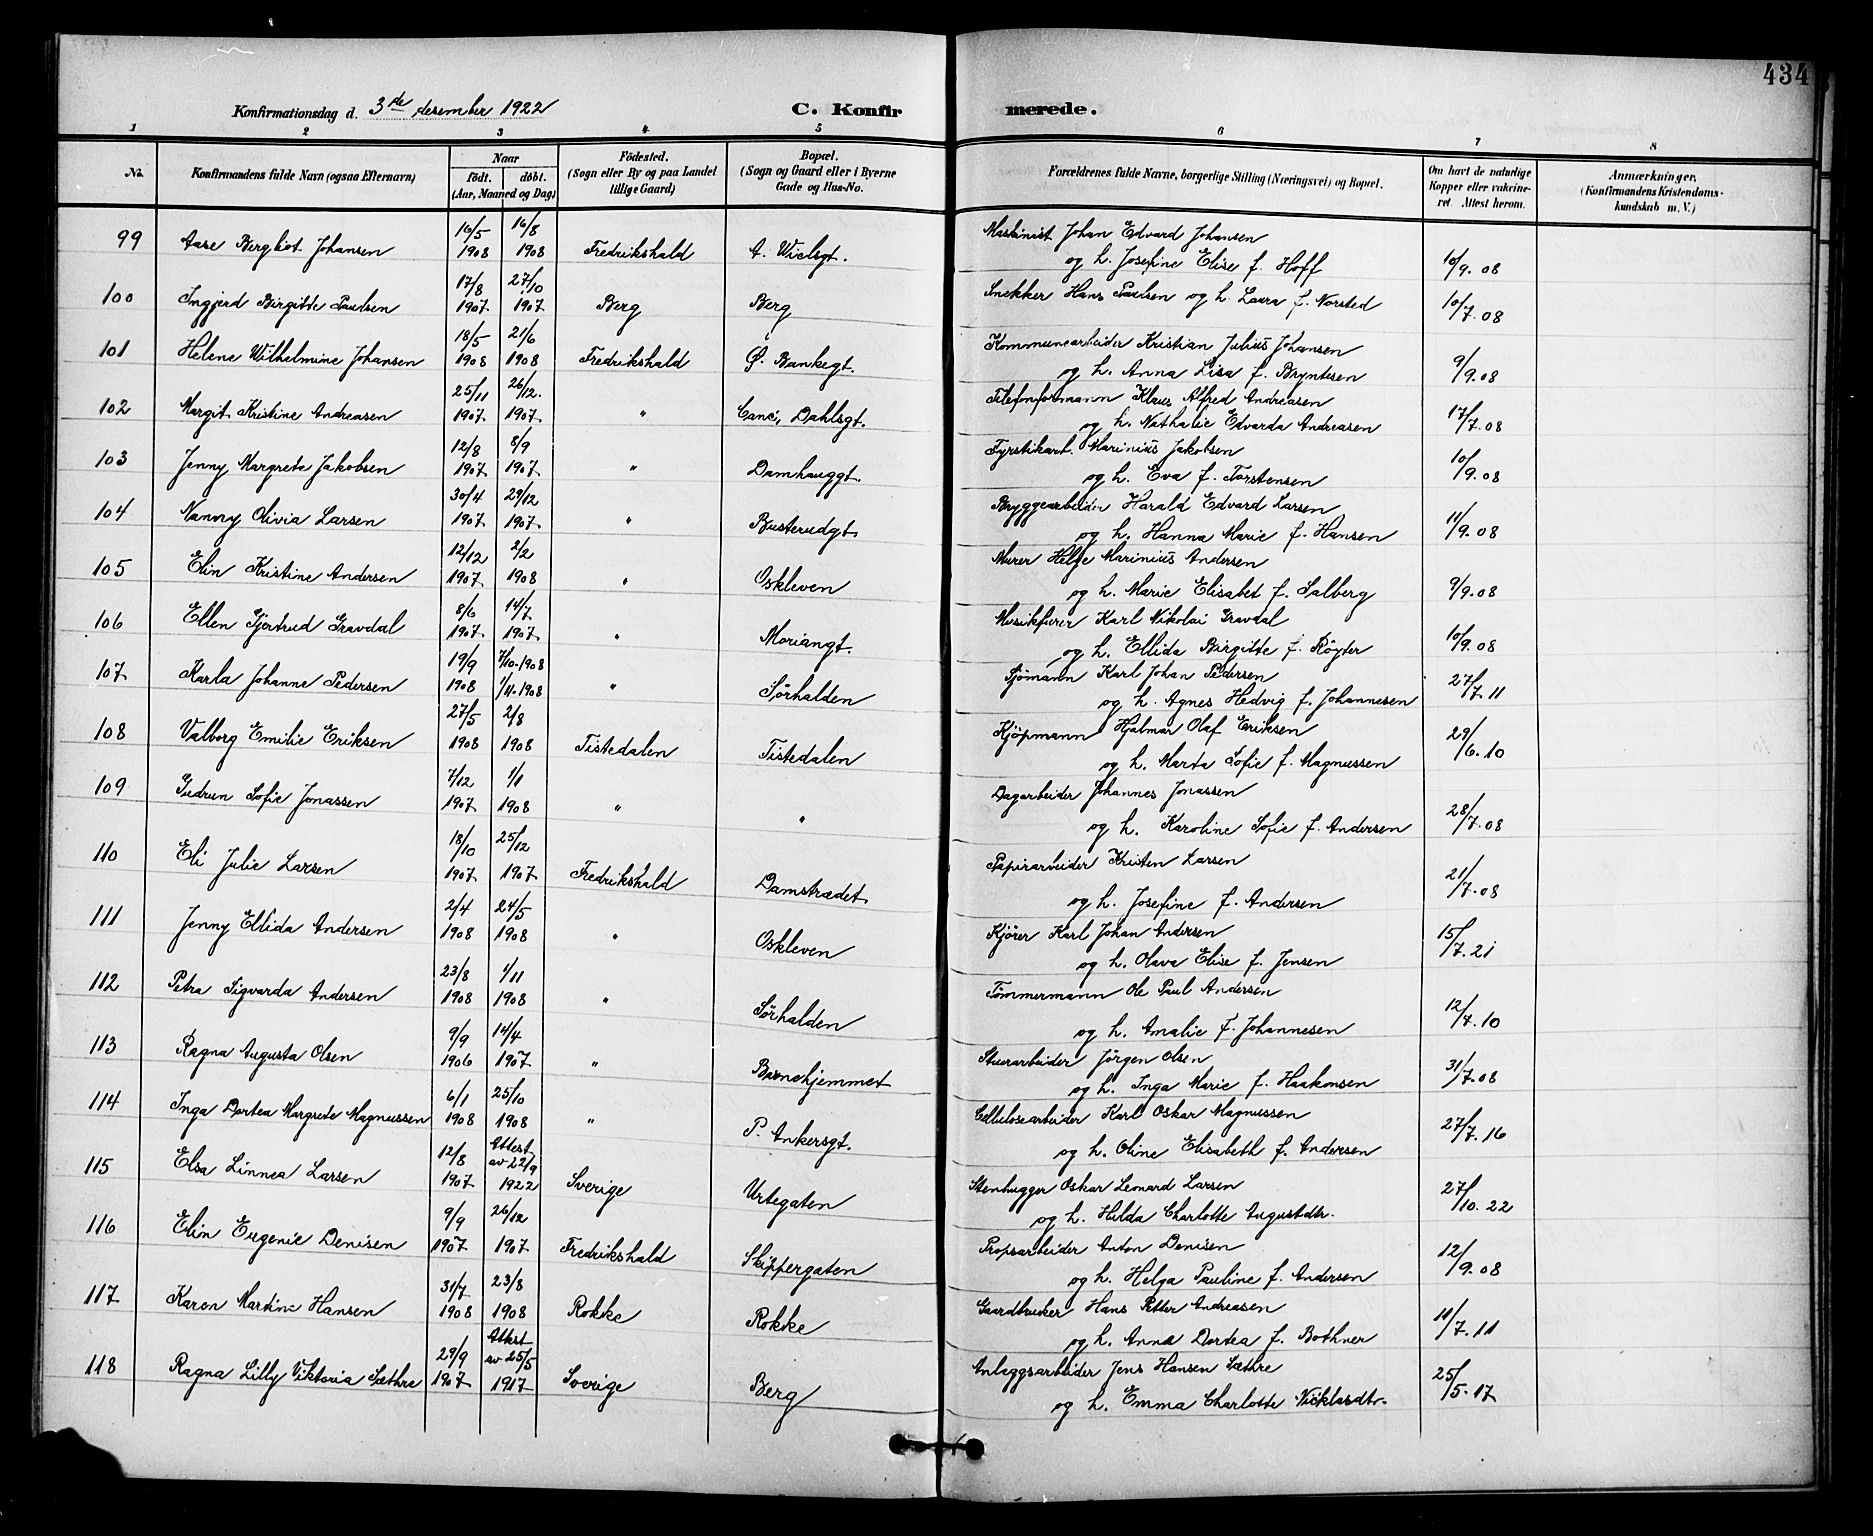 434
Konfirmationsdag d. 3de desember 1922 C. Konfirmerede.
1 2 3 4 5 6 7 8
No. Konfirmandens fulde Navn (ogsaa Efternavn) Naar født. døbt. (Aar, Maaned og Dag) Födested. (Sogn eller By og paa Landet tillige Gaard) Bopæl. (Sogn og Gaard eller i Byerne Gade og Hus-No. Forældrenes fulde Navne, borgerlige Stilling (Næringsvei) og Bopæl. Om havt de naturlige Kopper eller vakcineret. Attest herom. Anmærkninger, (Konfirmandens Kristendomskundskab m. V.)
99 Aase Bergliot Johansen 16/5 1908 16/8 1908 Fredrikshald A. Wielsgt. Maskinist Johan Edvard Johansen
og h. Josefine Elise f. Hoff 10/9. 08
100 Ingjerd Birgitte Paulsen 17/8 1907 27/10 1907 Berg Berg Snekker Hans Paulsen og h. Laura f. Norsted 10/7. 08
101 Helene Wilhelmine Johansen 18/5 1908 21/6 1908 Fredrikshald Ø. Bankegt. Kommunearbeider Kristian Julius Johansen
og h. Anna Lisa f. Bryntesen 9/9. 08
102 Margit Kristine Andreasen 25/11 1907 26/12. 1907 " Danc. Dahlsgt. Telefonformann Klaus Alfred Andreasen
og h. Nathalie Edvarda Andreasen 17/7. 08
103 Jenny Margrete Jakobsen 12/8 1907 8/9 1907 " Damhauggt. Fyrstikarb. Marinius Jakobsen
og h. Eva f. Torstensen 10/9. 08
104 Nanny Olivia Larsen 30/4 1907 29/12 1907 " Busterudgt. Bryggearbeider Harald Edvard Larsen
og h. Hanna Marie f. Hansen 11/9. 08
105 Elin Kristine Andersen 12/12 1907 2/2 1908 " Oskleven Murer Helge Marinius Andersen
og h. Marie Elisabet f. Salberg 9/9. 08
106 Ellen Gjertrud Gravdal 8/6 1907 14/7 1907 " Moriangt. Musikfurer Karl Nikolai Gravdal
og h. Ellida Birgitte f. Röyter 10/9. 08
107 Karla Johanne Pedersen 19/9 1908 7/10-1908 1/11-1908 " Sørhalden Sjømann Karl Johan Pedersen
og h. Agnes Hedvig f. Johannesen 27/7. 11
108 Valborg Emilie Eriksen 27/5 1908 2/8 1908 Tistedalen Tistedalen Kjøpmann Hjalmar Olaf Eriksen
og h. Marta Sofie f. Magnussen 29/6. 10
109 Gudrun Sofie Jonassen 7/12 1907 1/1 1908 " " Dagarbeider Johannes Jonassen
og h. Karoline Sofie f. Andersen 28/7. 08
110 Eli Julie Larsen 18/10 1907 25/12 1907 Fredrikshald Damstrædet Papirarbeider Kristen Larsen
og h. Josefine f. Andersen 21/7. 08
111 Jenny Ellida Andersen 2/4 1908 24/5 1908 " Oskleven Kjører Karl Johan Andersen
og h. Olava Elise f. Jensen 15/7. 21
112 Petra Sigvarda Andersen 23/8 1908 1/11 1908 " Sørhalden Tømmermann Ole Paul Andersen
og h. Amalie f. Johannesen 12/7. 10
113 Ragna Augusta Olsen 9/9 1906 14/4 1907 " Barnehjemmet Stuerarbeider Jørgen Olsen
og h. Inga Marie f. Haakonsen 31/7. 08
114 Inga Dortea Margrete Magnussen 6/1 1908 25/10 1908 " P. Ankersgt. Cellulosearbeider Karl Oskar Magnussen
og h. Oline Elisabeth f. Andersen 27/7. 16
115 Elsa Linnea Larsen 12/8 1907 Attest av 22/9 1922 Sverige Urtegaten Stenhugger Oskar Leonard Larsen
og h. Hilda Charlotte Augustdtr. 27/10. 22
116 Elin Eugenie Denisen 9/9 1907 26/12 1907 Fredrikshald Skippergaten Propsarbeider Anton Denisen
og h. Helga Pauline f. Andersen 12/9. 08
117 Karen Martine Hansen 31/7 1908 23/8 1908 Rokke Rokke Gaardbruker Hans Petter Andreasen
og h. Anna Dortea f. Bothner 11/7. 11
118 Ragna Lilly Viktoria Sæthre 29/9 1907 Attest av 25/5 1917 Sverige Berg Anlæggsarbeider Jens Hansen Sæthre
og h. Emma Charlotte Nicklasdtr. 25/5. 17